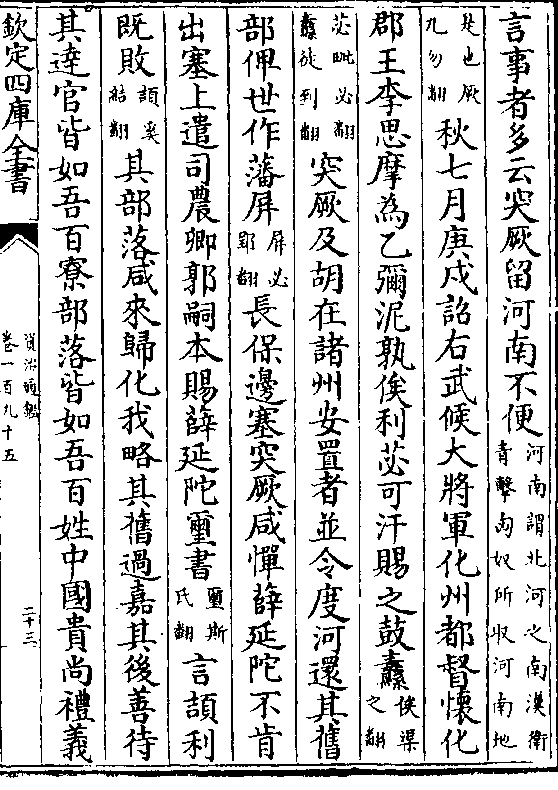 言事者多云突厥留河南不便河南謂北河之南漢衛青擊匈奴所収河南地
是也厥九勿翻秋七月庚戌詔右武候大將軍化州都督懷化
郡王李思摩為乙彌泥孰俟利苾可汗賜之鼓纛俟渠之翻
苾毗必翻纛徒到翻突厥及胡在諸州安置者並令度河還其舊
部俾世作藩屏屏必郢翻長保邊塞突厥咸憚薛延陀不肯
出塞上遣司農卿郭嗣本賜薛延陀璽書璽斯氏翻言頡利
既敗頡奚結翻其部落咸來歸化我略其舊過嘉其後善待
其達官皆如吾百寮部落皆如吾百姓中國貴尚禮義
欽定四庫全書
資治通鑑
卷一百九十五
二十三